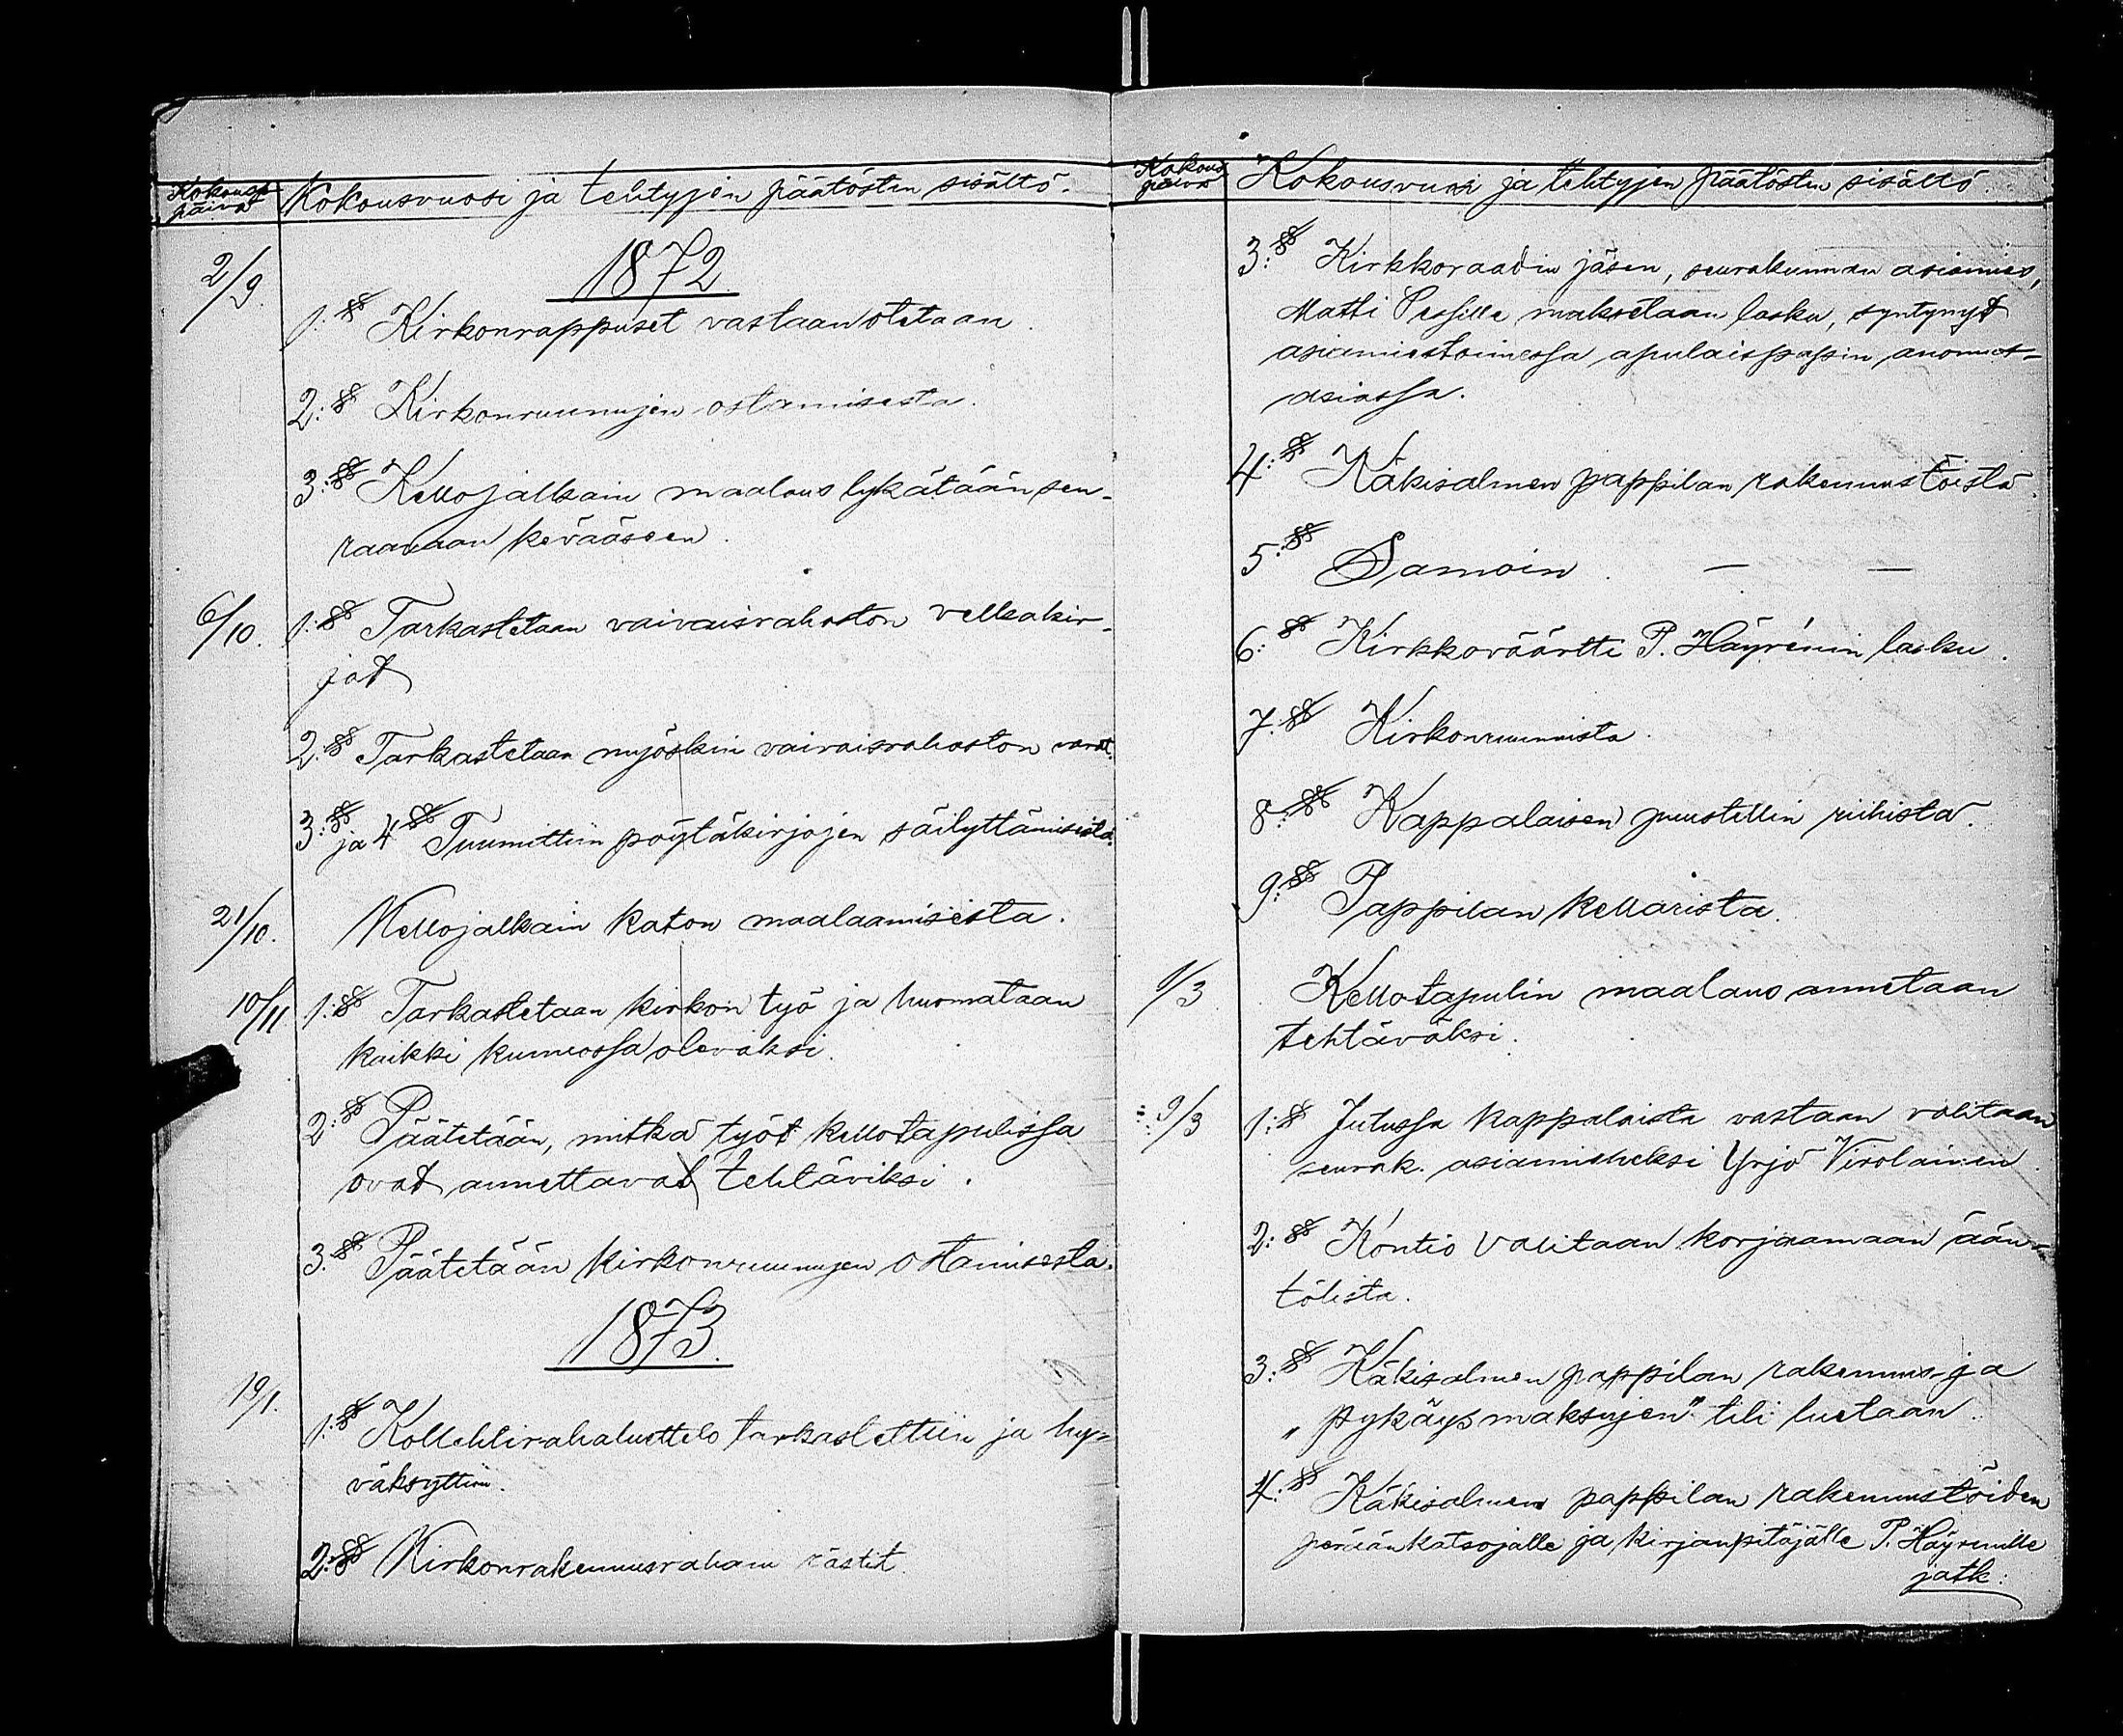 Kokous-
päivä
Kokousvuosi ja tehtyjen päätösten sisältö.
1872
2/9.
1:§§ Kirkonrappuset vastaanotetaan.
2:§ Kirkonruunujen ostamisesta.
3:§§ Kellojalkain maalaus lykätään seu-
raavaan kevääseen.
6/10.
1:§§ Tarkastetaan vaivaisrahaston velkakir-
jat
2:§§ Tarkastetaan myöskin vaivaisrahaston varat.
3:§§ ja 4§§ Tuumittiin pöytäkirjojen säilyttämisestä.
21/10.
Kellojalkain katon maalaamisesta.
10/11
1:§§ Tarkastetaan kirkon työ ja huomataan
kaikki kunnossa olevaksi.
2:§§ Päätetään, mitkä työt kellotapulissa
ovat annettavat tehtäviksi.
3.§§ Päätetään kirkonruunujen ostamisesta.
1873.
19/1.
1:§§ Kollehtirahaluettelo tarkastettiin ja hy-
väksyttiin.
2:§§ Kirkonrakennusrahain rästit.
Kokous
päivä
Kokousvuosi ja tehtyjen päätösten sisältö.
3:§§ Kirkkoraadin jäsen, seurakunnan asiamies,
Matti Pessille maksetaan lasku, syntynyt
asiamiestoimessa apulaispapin anomus-
asiassa.
4:§§ Käkisalmen pappilan rakennustöistä.
5:§§ Samoin. — —
6:§§ Kirkkoväärtti P. Häyrénin lasku.
7:§§ Kirkonruunuista.
8:§§ Kappalaisen puustellin riihistä.
9:§§ Pappilan kellarista.
/3
Kellotapulin maalaus annetaan
tehtäväksi.
9/3
1:§ Jutussa kappalaista vastaan valitaan
seurak. asiamieheksi Yrjö Virolainen.
2:§§ Kontio valitaan korjaamaan ään-
tölista.
3:§§ Käkisalmen pappilan rakennus- ja
„pykäysmaksujen" tili luetaan.
4:§§ Käkisalmen pappilan rakennustöiden
peräänkatsojalle ja kirjanpitäjälle P. Häyrenille
jatk.